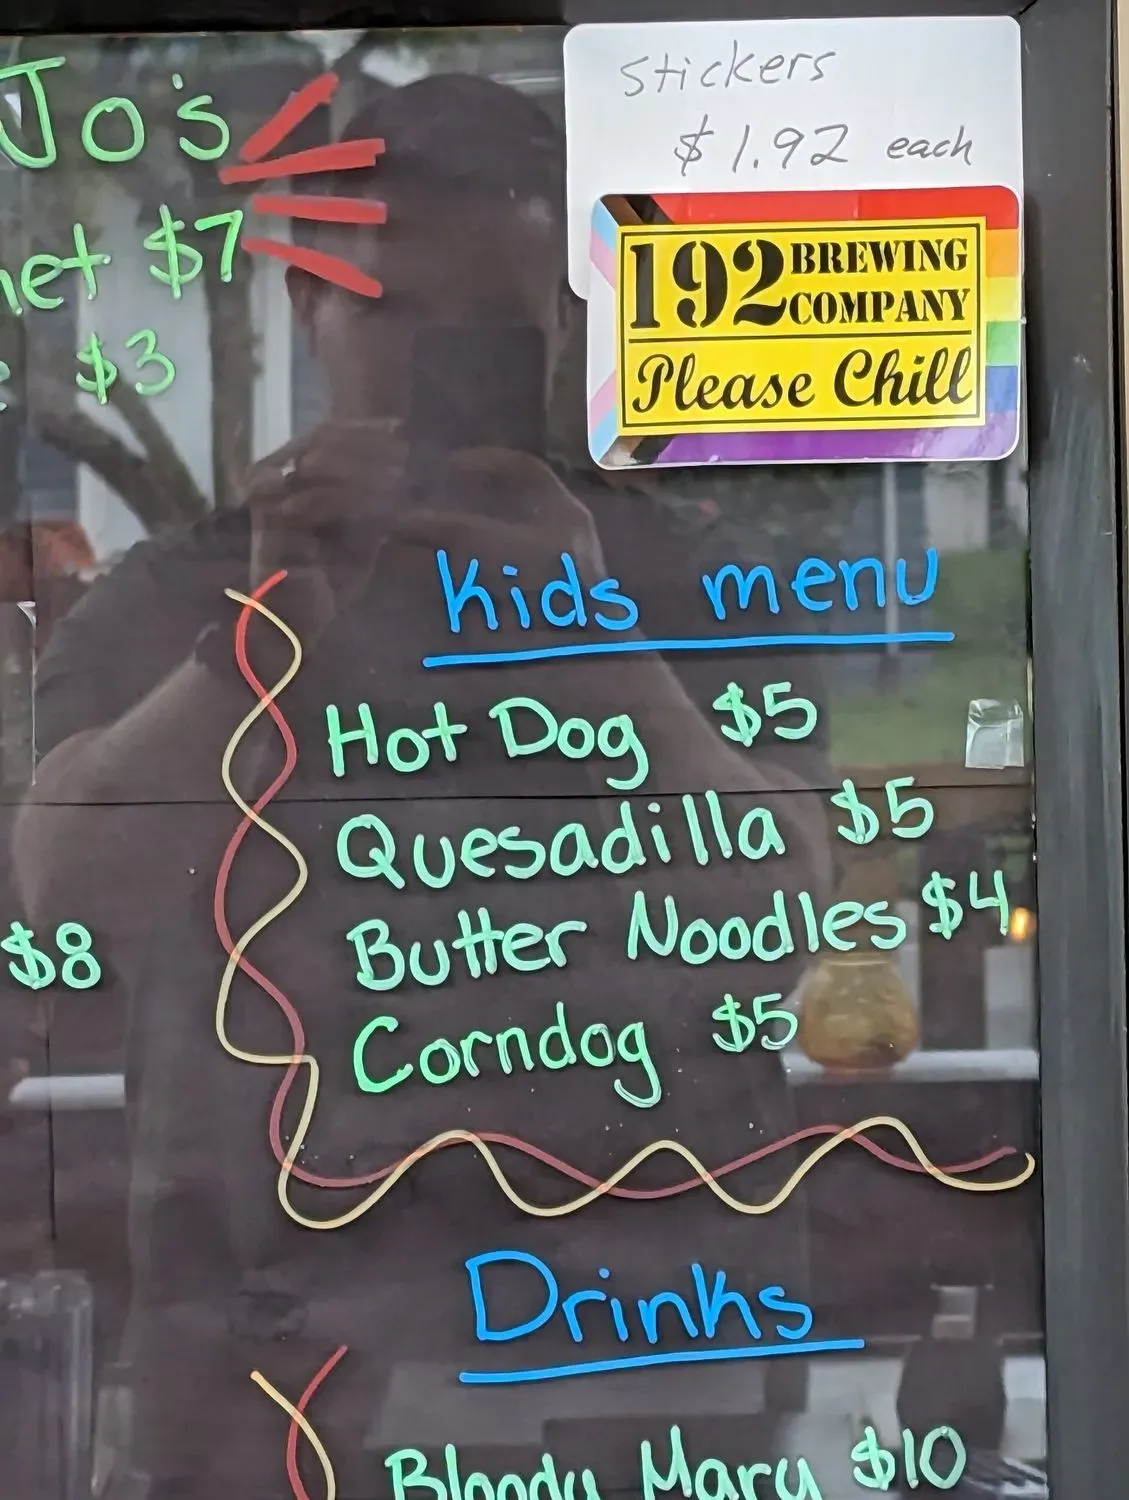 Jo's
$7
$3
Stickers
$1.92 each
192 BREWING
COMPANY
Please Chill
Kids menu
Hot Dog $5
Quesadilla $5
Butter Noodles $4
$8
Corndog $5
Drinks
Bloody Mary $10